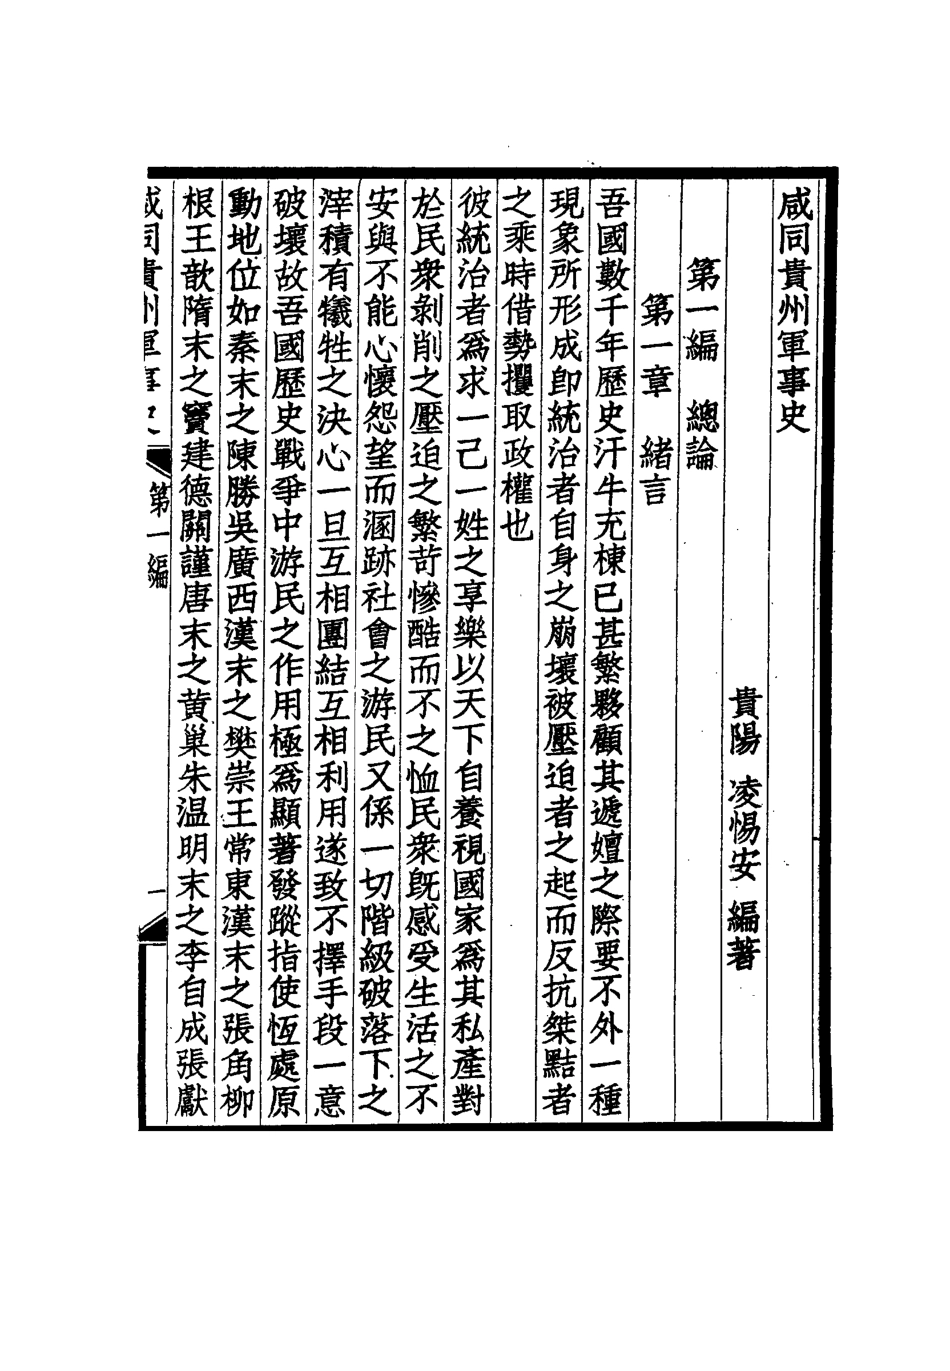 咸同貴州軍事史
貴陽 凌惕安 編著
第一編 總論
第一章 緒言
吾國數千年歷史汗牛充棟已甚繁夥顧其遞嬗之際要不外一種
現象所形成卽統治者自身之崩壞被壓迫者之起而反抗桀黠者
之乘時借勢攫取政權也
彼統治者爲求一己一姓之享樂以天下自養視國家爲其私產對
於民衆剝削之壓迫之繁苛慘酷而不之恤民衆旣感受生活之不
安與不能心懷怨望而溷跡社會之游民又係一切階級破落下之
滓積有犧牲之決心一旦互相團結互相利用遂致不擇手段一意
破壞故吾國歷史戰爭中游民之作用極爲顯著發蹤指使恆處原
動地位如秦末之陳勝吳廣西漢末之樊崇王常東漢末之張角柳
根王歆隋末之竇建德關謹唐末之黃巢朱温明末之李自成張獻
咸同貴州軍事史 第一編 一